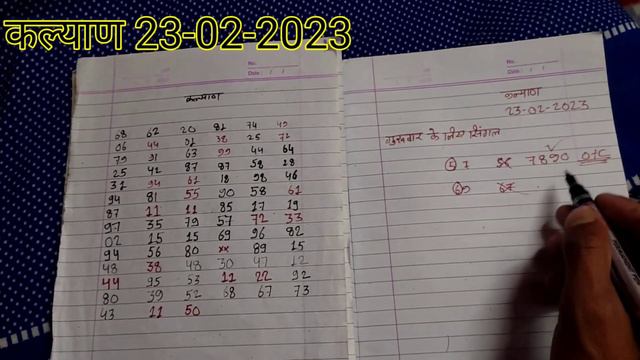 कल्याण 23-02-2023
कल्याण
08 62 20 81 74 49
06 44 01 38 25 72
79 91 63 99 44 64
25 42 87 87 58 28
31 94 61 18 98 46
94 81 55 90 58 61
87 11 11 85 17 19
97 35 79 57 72 33
02 15 15 69 96 82
94 56 80 ** 89 15
48 38 48 30 47 12
44 95 53 11 22 92
80 39 52 68 67 73
43 11 50
No.
Date : / /
कल्याण
23-02-2023
के लिए सिंगल
7890 OTC